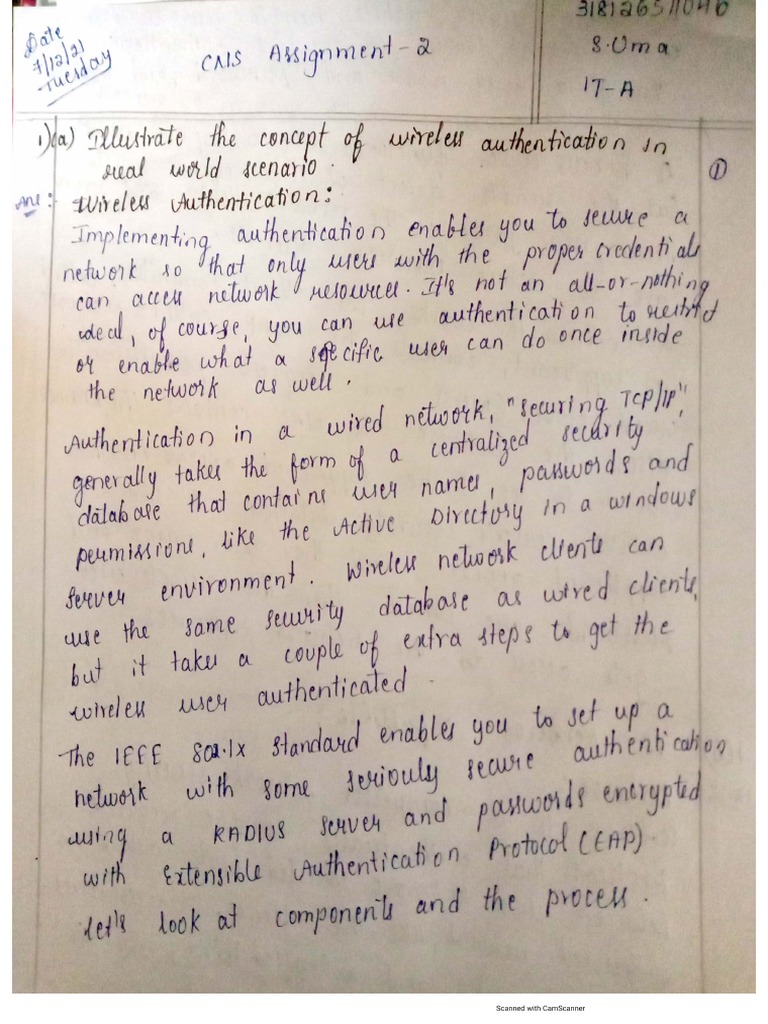 Date
7/12/21
Tuesday
CNS Assignment-2
318126511046
S.Uma
IT-A
1)(a) Illustrate the concept of wireless authentication in
real world scenario.
①
Ans:- Wireless Authentication:
Implementing authentication enables you to secure a
network so that only users with the proper credentials
can access network resources. It's not an all-or-nothing
deal, of course, you can use authentication to restrict
or enable what a specific user can do once inside
the network as well.
Authentication in a wired network, "securing TCP/IP",
generally takes the form of a centralized security
database that contains user names, passwords and
permissions, like the Active Directory in a windows
server environment. Wireless network clients can
use the same security database as wired clients,
but it takes a couple of extra steps to get the
wireless user authenticated.
The IEEE 802.1x standard enables you to set up a
network with some seriously secure authentication
using a RADIUS server and passwords encrypted
with Extensible Authentication Protocol (EAP).
Let's look at components and the process.
Scanned with CamScanner